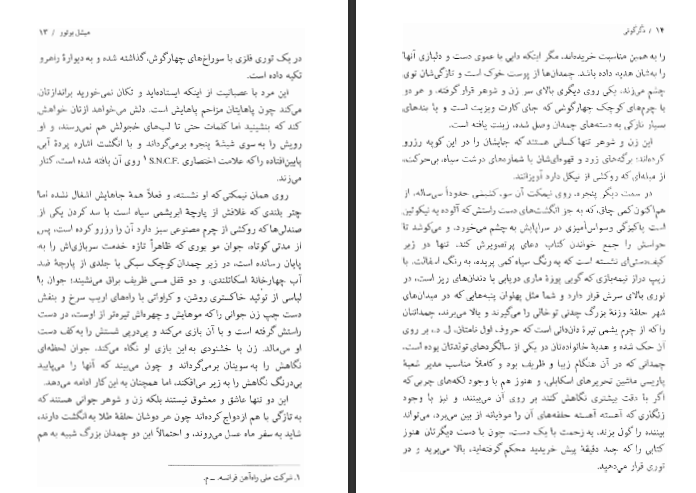 میشل بوتور / ۱۳
در یک توری فلزی با سوراخ‌های چهارگوش، گذاشته شده و به دیوارهٔ راهرو
تکیه داده است.
این مرد با عصبانیت از اینکه ایستاده‌اید و تکان نمی‌خورید براندازتان
می‌کند چون پاهایتان مزاحم پاهایش است. دلش می‌خواهد ازتان خواهش
کند که بنشینید اما کلمات حتی تا لب‌های خجولش هم نمی‌رسند، و او
رویش را به سوی شیشهٔ پنجره برمی‌گرداند و با انگشت اشاره پردهٔ آبی
پایین‌افتاده را که علامت اختصاری S.N.C.F.۱ روی آن بافته شده است، کنار
می‌زند.
روی همان نیمکتی که او نشسته، و فعلاً همهٔ جاهایش اشغال نشده اما
چتر بلندی که غلافش از پارچهٔ ابریشمی سیاه است با سد کردن یکی از
صندلی‌ها که روکشی از چرم مصنوعی سبز دارد آن را رزرو کرده است، پس
از مدتی کوتاه، جوان مو بوری که ظاهراً تازه خدمت سربازی‌اش را به
پایان رسانده است، در زیر چمدان کوچک سبکی با جلدی از پارچهٔ ضد
آب چهارخانهٔ اسکاتلندی، و دو قفل مسی ظریف براق می‌نشیند؛ جوان با
لباسی از توئید خاکستری روشن، و کراواتی با راه‌های اریب سرخ و بنفش
دست چپ زن جوانی را که موهایش و چهره‌اش تیره‌تر از اوست، در دست
راستش گرفته است و با آن بازی می‌کند و پی‌درپی شستش را به کف دست
او می‌مالد. زن با خشنودی به این بازی او نگاه می‌کند. جوان لحظه‌ای
نگاهش را به سویتان برمی‌گرداند و چون می‌بیند که آنها را می‌پایید
بی‌درنگ نگاهش را به زیر می‌افکند، اما همچنان به این کار ادامه می‌دهد.
این دو تنها عاشق و معشوق نیستند بلکه زن و شوهر جوانی هستند که
به تازگی با هم ازدواج کرده‌اند چون هر دوشان حلقهٔ طلا به انگشت دارند،
شاید به سفر ماه عسل می‌روند، و احتمالاً این دو چمدان بزرگ شبیه به هم
۱. شرکت ملی راه‌آهن فرانسه. ـ م.
۱۴ / دگرگونی
را به همین مناسبت خریده‌اند، مگر اینکه دایی یا عموی دست و دلبازی آنها
را به‌شان هدیه داده باشد. چمدان‌ها از پوست خوک است و تازگی‌شان توی
چشم می‌زند. یکی روی دیگری بالای سر زن و شوهر قرار گرفته، و هر دو
با چرم‌های کوچک چهارگوشی که جای کارت ویزیت است و با بندهای
بسیار نازکی به دسته‌های چمدان وصل شده، زینت یافته است.
این زن و شوهر تنها کسانی هستند که جایشان را در این کوپه رزرو
کرده‌اند؛ برگه‌های زرد و قهوه‌ای‌شان با شماره‌های درشت سیاه، بی‌حرکت،
از میله‌ای که روکشی از نیکل دارد آویزانند.
در سمت دیگر پنجره، روی نیمکت آن سو، کشیشی حدوداً سی‌ساله، از
هم‌اکنون کمی چاق، که به جز انگشت‌های دست راستش که آلوده به نیکوتین
است پاکیزگی وسواس‌آمیزی در سراپایش به چشم می‌خورد، و می‌کوشد تا
حواسش را جمع خواندن کتاب دعای پرتصویرش کند، تنها در زیر
کیف‌دستی‌ای نشسته است که به رنگ سیاه کمی پریده، به رنگ آسفالت، با
زیپ دراز نیمه‌بازی که گویی پوزهٔ ماری دریایی با دندان‌های ریز است، در
توری بالای سرش قرار دارد و شما مثل پهلوان پنبه‌هایی که در میدان‌های
شهر حلقهٔ وزنهٔ بزرگ چدنی تو خالی را می‌گیرند و بالا می‌برند، چمدانتان
را که از چرم یشمی تیرهٔ دان‌دانی است که حروف اول نامتان، ل. د، بر روی
آن حک شده و هدیهٔ خانواده‌تان در یکی از سالگردهای تولدتان بوده است،
چمدانی که در آن هنگام زیبا و ظریف بود و کاملاً مناسب مدیر شعبهٔ
پاریسی ماشین تحریرهای اسکابلی، و هنوز هم با وجود لکه‌های چربی که
اگر با دقت بیشتری نگاهش کنند بر روی آن می‌بینند، و نیز با وجود
زنگاری که آهسته آهسته حلقه‌های آن را موذیانه از بین می‌برد، می‌تواند
بیننده را گول بزند، به زحمت با یک دست، چون با دست دیگرتان هنوز
کتابی را که چند دقیقهٔ پیش خریدید محکم گرفته‌اید، بالا می‌برید و در
توری قرار می‌دهید.